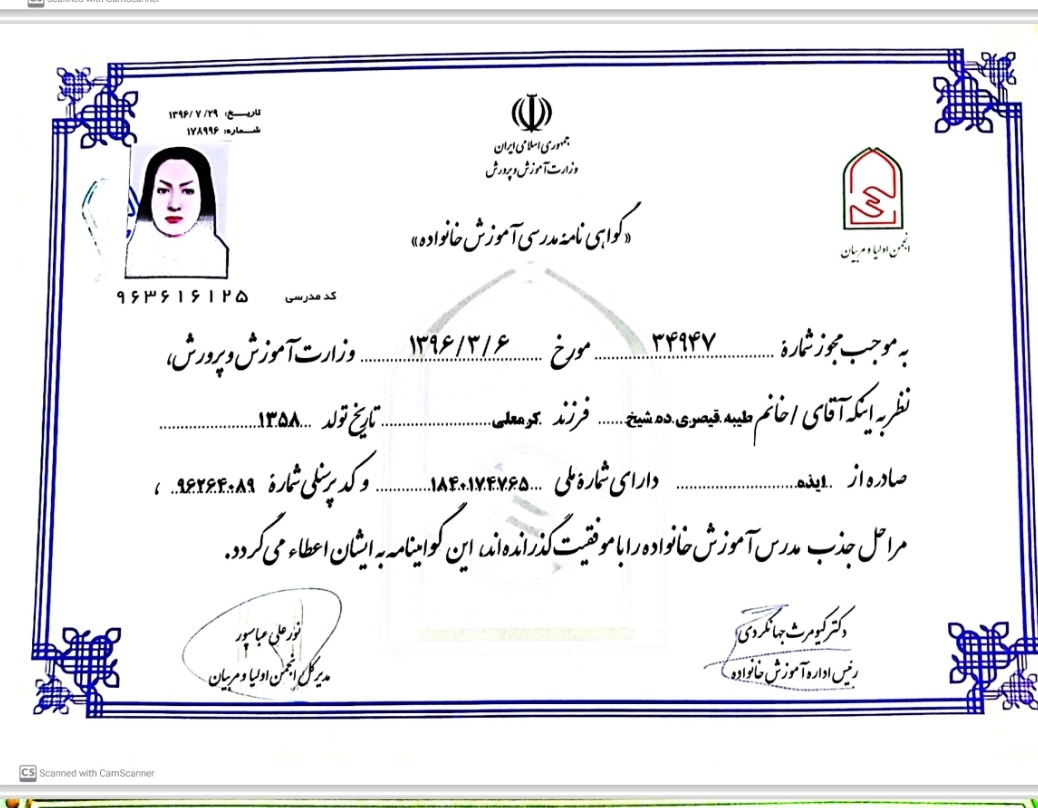 Scanned with CamScanner
تاریـــخ: ۱۳۹۶/۷/۲۹
شمـــاره: ۱۷۸۹۹۶
جمهوری اسلامی ایران
وزارت آموزش و پرورش
«گواهی نامهٔ مدرسی آموزش خانواده»
انجمن اولیا و مربیان
کد مدرسی ۹۶۳۶۱۶۱۲۵
به موجب مجوز شمارهٔ ۳۴۹۴۷ مورخ ۱۳۹۶/۳/۶ وزارت آموزش و پرورش،
نظر به اینکه آقای / خانم طیبه قیصری ده شیخ فرزند کرمعلی تاریخ تولد ۱۳۵۸
صادره از ایذه دارای شمارهٔ ملی ۱۸۴۰۱۷۴۷۶۵ و کد پرسنلی شمارهٔ ۹۶۲۶۴۰۸۹ ،
مراحل جذب مدرس آموزش خانواده را با موفقیت گذرانده‌اند، این گواهینامه به ایشان اعطاء می گردد.
دکتر کیومرث جهانگردی
رئیس اداره آموزش خانواده
نورعلی عباسپور
مدیرکل انجمن اولیا و مربیان
CS Scanned with CamScanner